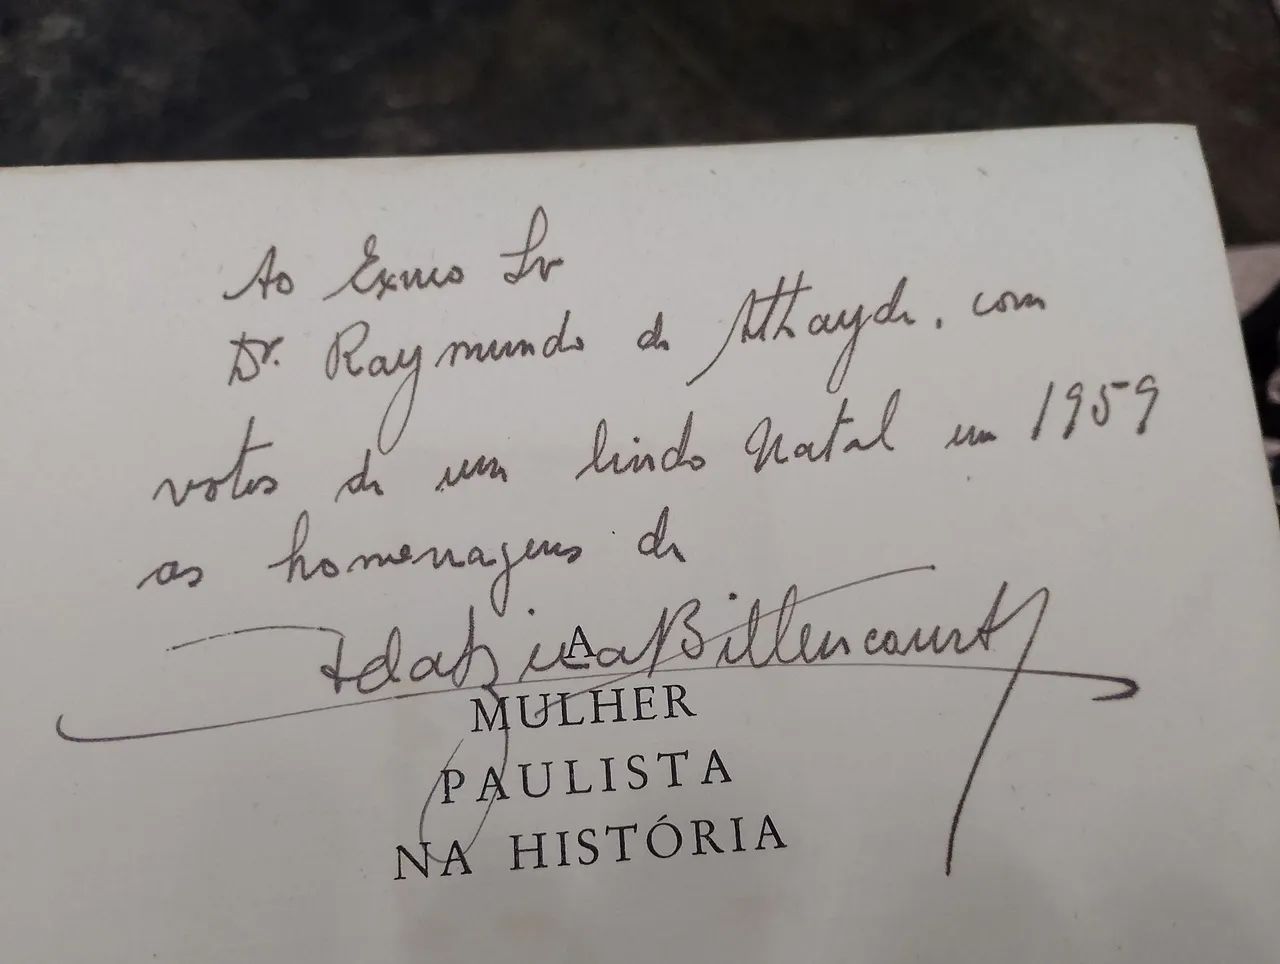 Ao Exmo Sr
Dr. Raymundo de Athayde, com
votos de um lindo Natal em 1959
as homenagens de
Adalzira Bittencourt
A
MULHER
PAULISTA
NA HISTÓRIA